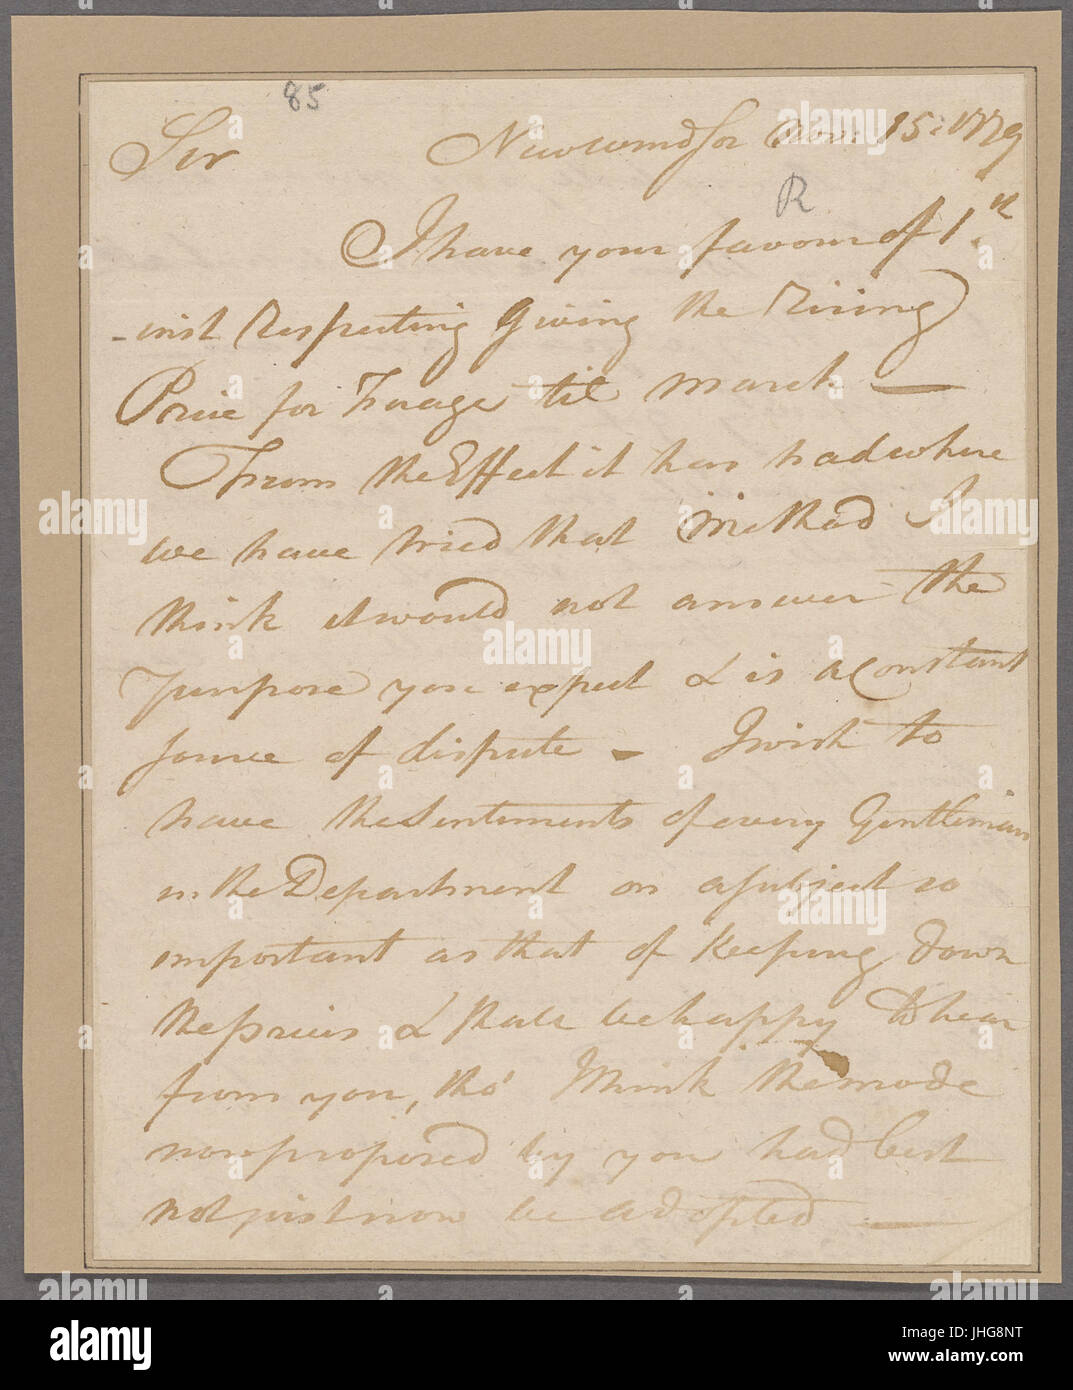 85
Sir Newwindsor Nov. 15: 1779
R
I have your favour of 1st
-inst Respecting Giving the Rising
Price for Forage til march —
From the Effect it has had where
we have tried that Method I
think it would not answer the
Purpose you expect & is a Constant
source of dispute — I wish to
have the Sentiments of every Gentleman
in the Department on a subject so
important as that of Keeping down
the prices & shall be happy to hear
from you, tho' I think the mode
now proposed by you had best
not just now be adopted —
alamy
Image ID: JHG8NT
www.alamy.com